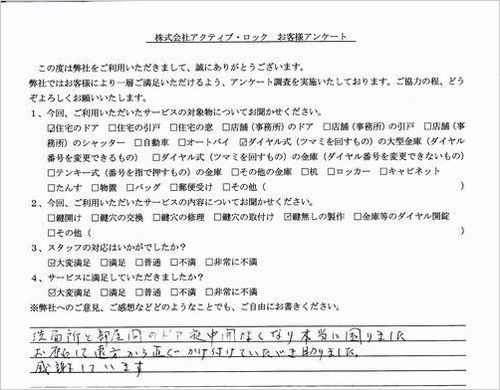 株式会社アクティブ・ロック　お客様アンケート
この度は弊社をご利用いただきまして、誠にありがとうございます。
弊社ではお客様により一層ご満足いただけるよう、アンケート調査を実施いたしております。ご協力の程、どう
ぞよろしくお願いいたします。
1、今回、ご利用いただいたサービスの対象物についてお聞かせください。
☑住宅のドア　□住宅の引戸　□住宅の窓　□店舗（事務所）のドア　□店舗（事務所）の引戸　□店舗（事
務所）のシャッター　□自動車　□オートバイ　☑ダイヤル式（ツマミを回すもの）の大型金庫（ダイヤル
番号を変更できるもの）　□ダイヤル式（ツマミを回すもの）の金庫（ダイヤル番号を変更できないもの）
□テンキー式（番号を指で押すもの）の金庫　□その他の金庫　□机　□ロッカー　□キャビネット
□たんす　□物置　□バッグ　□郵便受け　□その他（　　　）
2、今回、ご利用いただいたサービスの内容についてお聞かせください。
□鍵開け　□鍵穴の交換　□鍵穴の修理　□鍵穴の取付け　☑鍵無しの製作　□金庫等のダイヤル開錠
□その他（　　　）
3、スタッフの対応はいかがでしたか？
☑大変満足　□満足　□普通　□不満　□非常に不満
4、サービスに満足していただきましたか？
☑大変満足　□満足　□普通　□不満　□非常に不満
※弊社へのご意見、ご感想などどのようなことでも、ご自由にお書きください。
洗面所と部屋間のドア夜中開なくなり本当に困りました
お願して遠方から直ぐかけ付けていただき助りました。
感謝しています